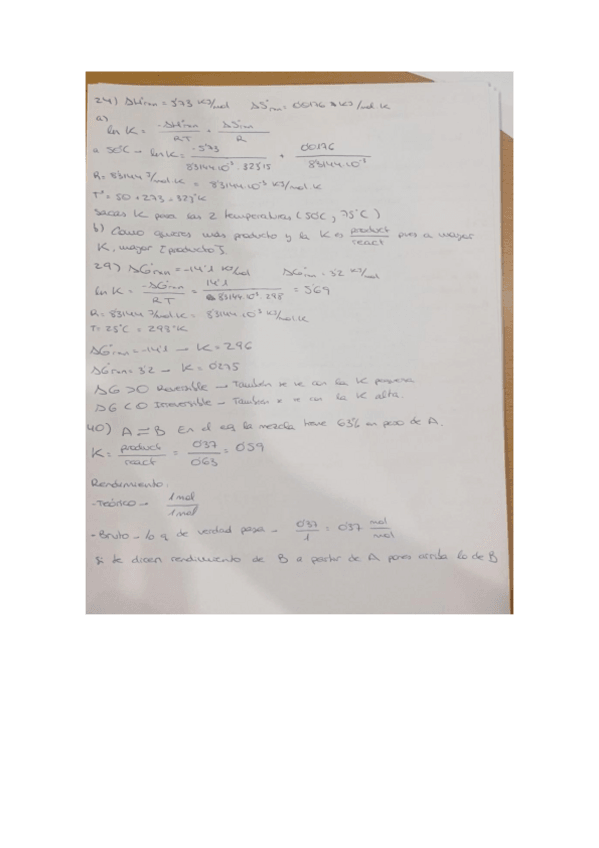 24) ΔH°rxn = 5'73 KJ/mol ΔS°rxn = 0'0176 KJ/mol·K
a)
ln K = -ΔH°rxn / RT + ΔS°rxn / R
a 50°C → ln K = -5'73 / 8'3144·10⁻³·323'15 + 0'0176 / 8'3144·10⁻³
R = 8'3144 J/mol·K = 8'3144·10⁻³ KJ/mol·K
Tª = 50 + 273 = 323°K
Sacas K para las 2 temperaturas (50°C y 75°C)
b) Como quieres más producto y la K es product / react pues a mayor
K, mayor [producto].
29) ΔG°rxn = -14'1 KJ/mol ΔG°rxn = 3'2 KJ/mol
ln K = -ΔG°rxn / RT = 14'1 / 8'3144·10⁻³·298 = 5'69
R = 8'3144 J/mol·K = 8'3144·10⁻³ KJ/mol·K
T = 25°C = 298°K
ΔG°rxn = -14'1 → K = 296
ΔG°rxn = 3'2 → K = 0'275
ΔG > 0 Reversible → También se ve con la K pequeña
ΔG < 0 Irreversible → También se ve con la K alta.
40) A ⇌ B En el eq la mezcla tiene 63% en peso de A.
K = product / react = 0'37 / 0'63 = 0'59
Rendimiento:
- Teórico → 1 mol / 1 mol
- Bruto → lo q de verdad pasa → 0'37 / 1 = 0'37 mol / mol
Si te dicen rendimiento de B a partir de A pones arriba lo de B